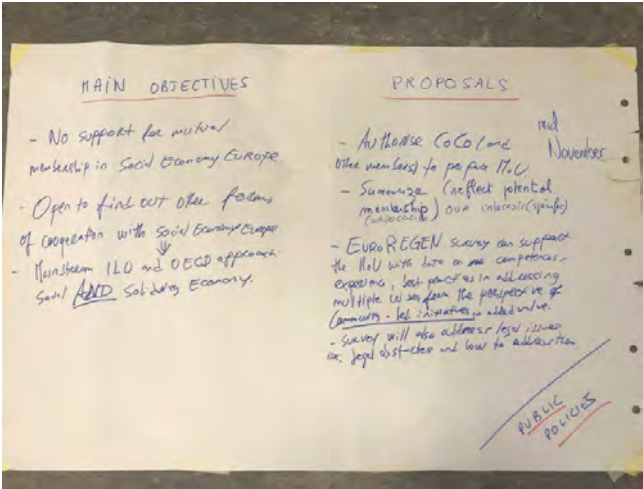 MAIN OBJECTIVES
- No support for mutual
membership in Social Economy Europe.
- Open to find out other forms
of cooperation with Social Economy Europe
- Mainstream ILO and OECD approach.
Social AND Solidarity Economy.
PROPOSALS
mid
November
- Authorise CoCo (and
other members) to prepare MoU
- Summarize (reflect potential
membership) our interests (specific)
- EUROREGEN survey can support
the MoU with data on our competences,
experience, best practices in addressing
multiple crises from the perspective of
Community-led initiatives added value.
- Survey will also address legal issues
legal obstacles and how to address them
PUBLIC
POLICIES